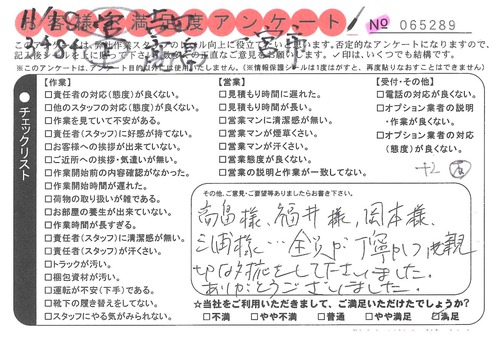 お客様不満足度アンケート
№ 065289
このアンケートは、弊社作業スタッフのスキル向上に役立てたいと思います。否定的なアンケートになりますので、
記入後シールを上に貼って下さい。皆様の率直なご意見をお聞かせ下さい。✓印は、いくつでも結構です。
※このアンケートは、アンケート目的以外には使用いたしません。(※情報保護シールは1度はがすと、再度貼りなおすことはできません)
●チェックリスト
【作業】
□責任者の対応(態度)が良くない。
□他のスタッフの対応(態度)が良くない。
□作業を見ていて不安がある。
□責任者(スタッフ)に好感が持てない。
□お客様への挨拶が出来ていない。
□ご近所への挨拶・気遣いが無い。
□作業開始前の内容確認がなかった。
□作業開始時間が遅れた。
□荷物の取り扱いが雑である。
□お部屋の養生が出来ていない。
□作業時間が長すぎる。
□責任者(スタッフ)に清潔感が無い。
□責任者(スタッフ)が汗さい。
□トラックが汚い。
□梱包資材が汚い。
□運転が不安(下手)である。
□靴下の履き替えをしてない。
□スタッフにやる気がみられない。
【営業】
□見積もりに遅れた。
□見積もり時間が長い。
□営業マンに清潔感が無い。
□営業マンが煙草くさい。
□営業マンが汗さい。
□営業態度が良くない。
□営業の説明と作業が一致してない。
【受付・その他】
□電話の対応が良くない。
□オプション業者の説明
・作業が良くない。
□オプション業者の対応
(態度)が良くない。
その他、ご意見・ご要望等ありましたらお書き下さい。
高畠様、福井様、岡本様、
三浦様…全員が丁寧かつ親
切な対応をして下さいました。
ありがとうございました。
☆当社をご利用いただきまして、ご満足いただけたでしょうか?
□不満 □やや不満 □普通 □やや満足 ☑満足